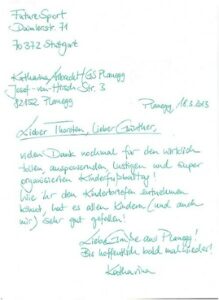 FutureSport
Daimlerstr. 71
70372 Stuttgart
Katharina Albrecht / GS Planegg
Josef-von-Hirsch-Str. 3
82152 Planegg
Planegg, 18.3.2013
Lieber Thorsten, lieber Günther,
vielen Dank nochmal für den wirklich
tollen, auspowernden, lustigen und super
organisierten Kinderfußballtag!
Wie ihr den Kinderbriefen entnehmen
könnt, hat es allen Kindern (und auch
mir) sehr gut gefallen!
Liebe Grüße aus Planegg!
Bis hoffentlich bald mal wieder!
Katharina